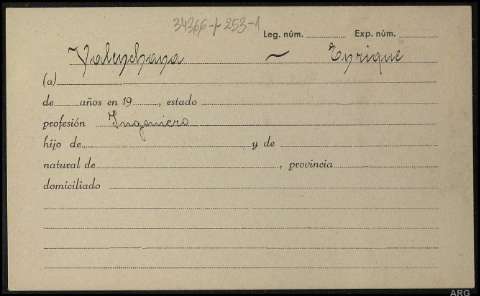 34366-f 253-1
Leg. núm. Exp. núm.
~ Enrique
(a)
de años en 19 , estado
profesión Ingeniero
hijo de y de
natural de , provincia
domiciliado
ARG